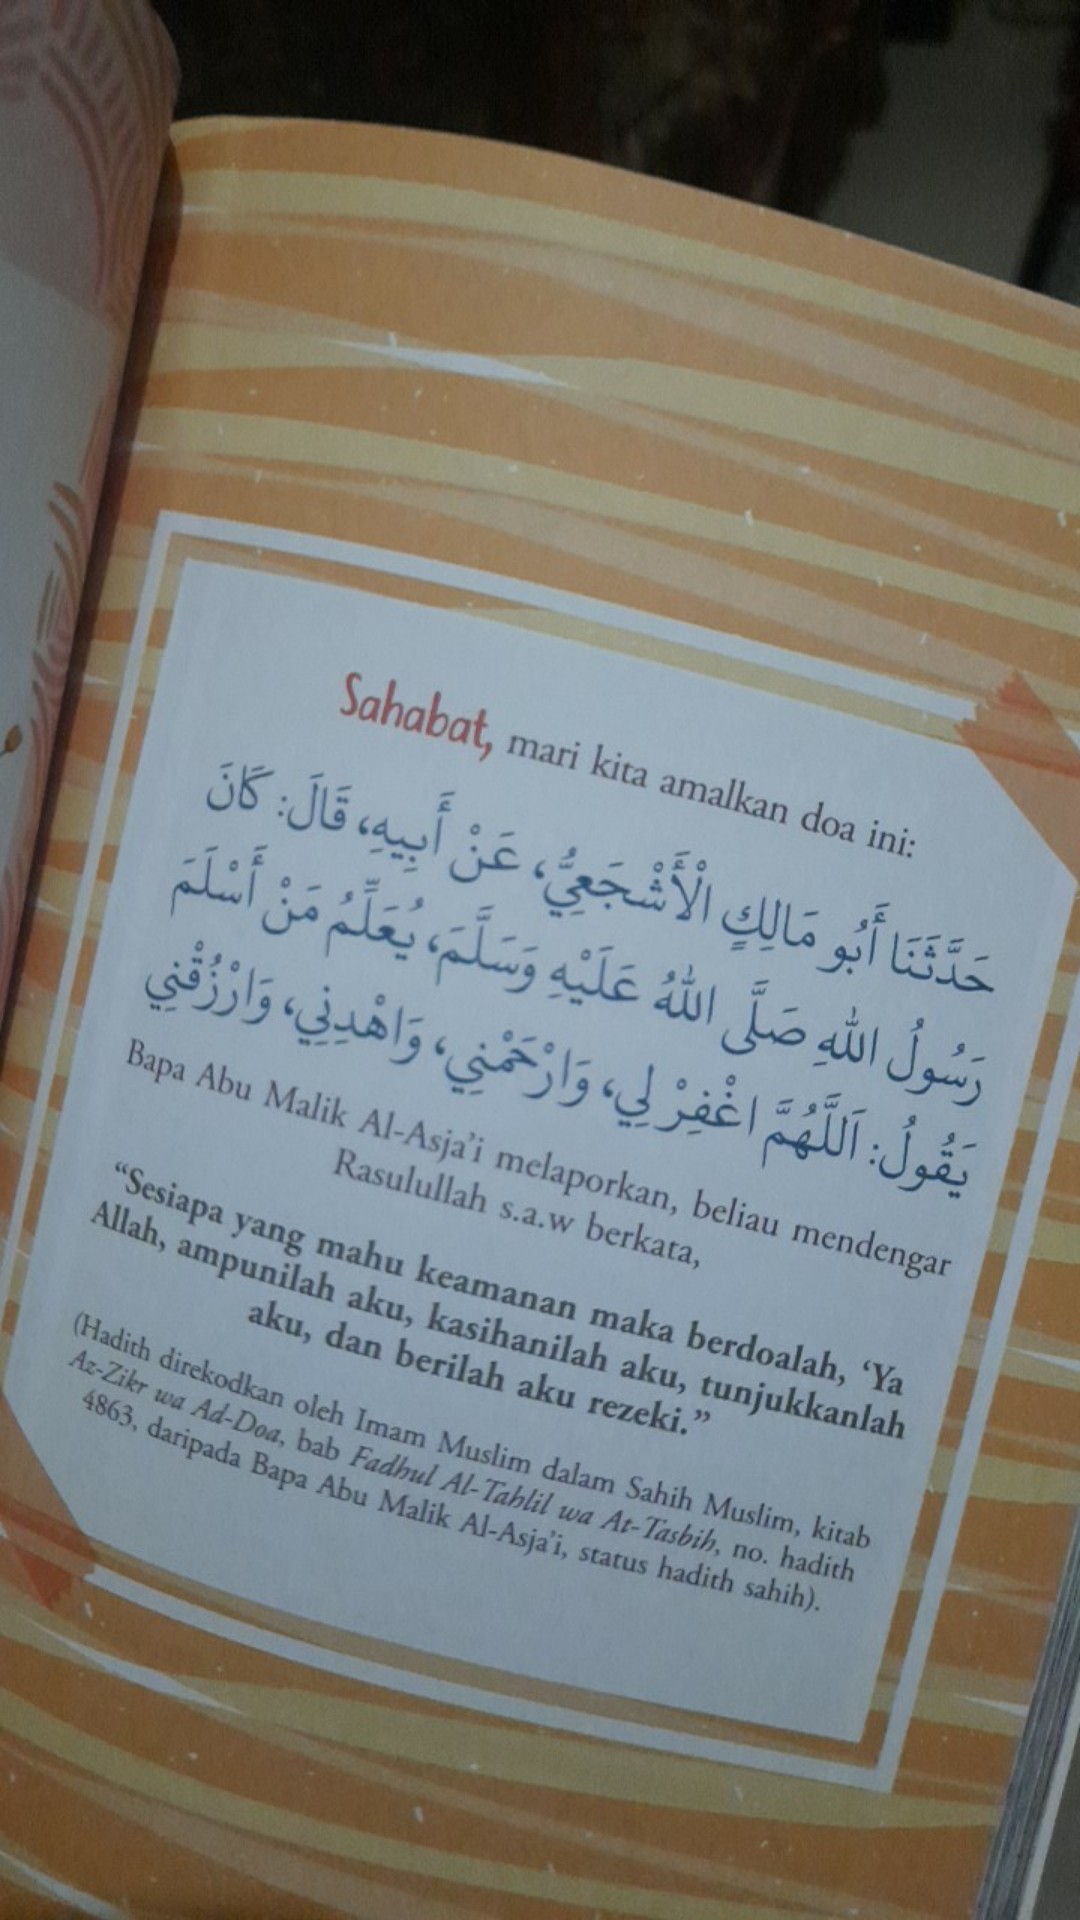 Sahabat, mari kita amalkan doa ini:
حَدَّثَنَا أَبُو مَالِكٍ الْأَشْجَعِيُّ، عَنْ أَبِيهِ، قَالَ: كَانَ
رَسُولُ اللهِ صَلَّى اللهُ عَلَيْهِ وَسَلَّمَ، يُعَلِّمُ مَنْ أَسْلَمَ
يَقُولُ: اَللَّهُمَّ اغْفِرْ لِي، وَارْحَمْنِي، وَاهْدِنِي، وَارْزُقْنِي
Bapa Abu Malik Al-Asja’i melaporkan, beliau mendengar
Rasulullah s.a.w berkata,
“Sesiapa yang mahu keamanan maka berdoalah, ‘Ya
Allah, ampunilah aku, kasihanilah aku, tunjukkanlah
aku, dan berilah aku rezeki.”
(Hadith direkodkan oleh Imam Muslim dalam Sahih Muslim, kitab
Az-Zikr wa Ad-Doa, bab Fadhul Al-Tahlil wa At-Tasbih, no. hadith
4863, daripada Bapa Abu Malik Al-Asja’i, status hadith sahih).